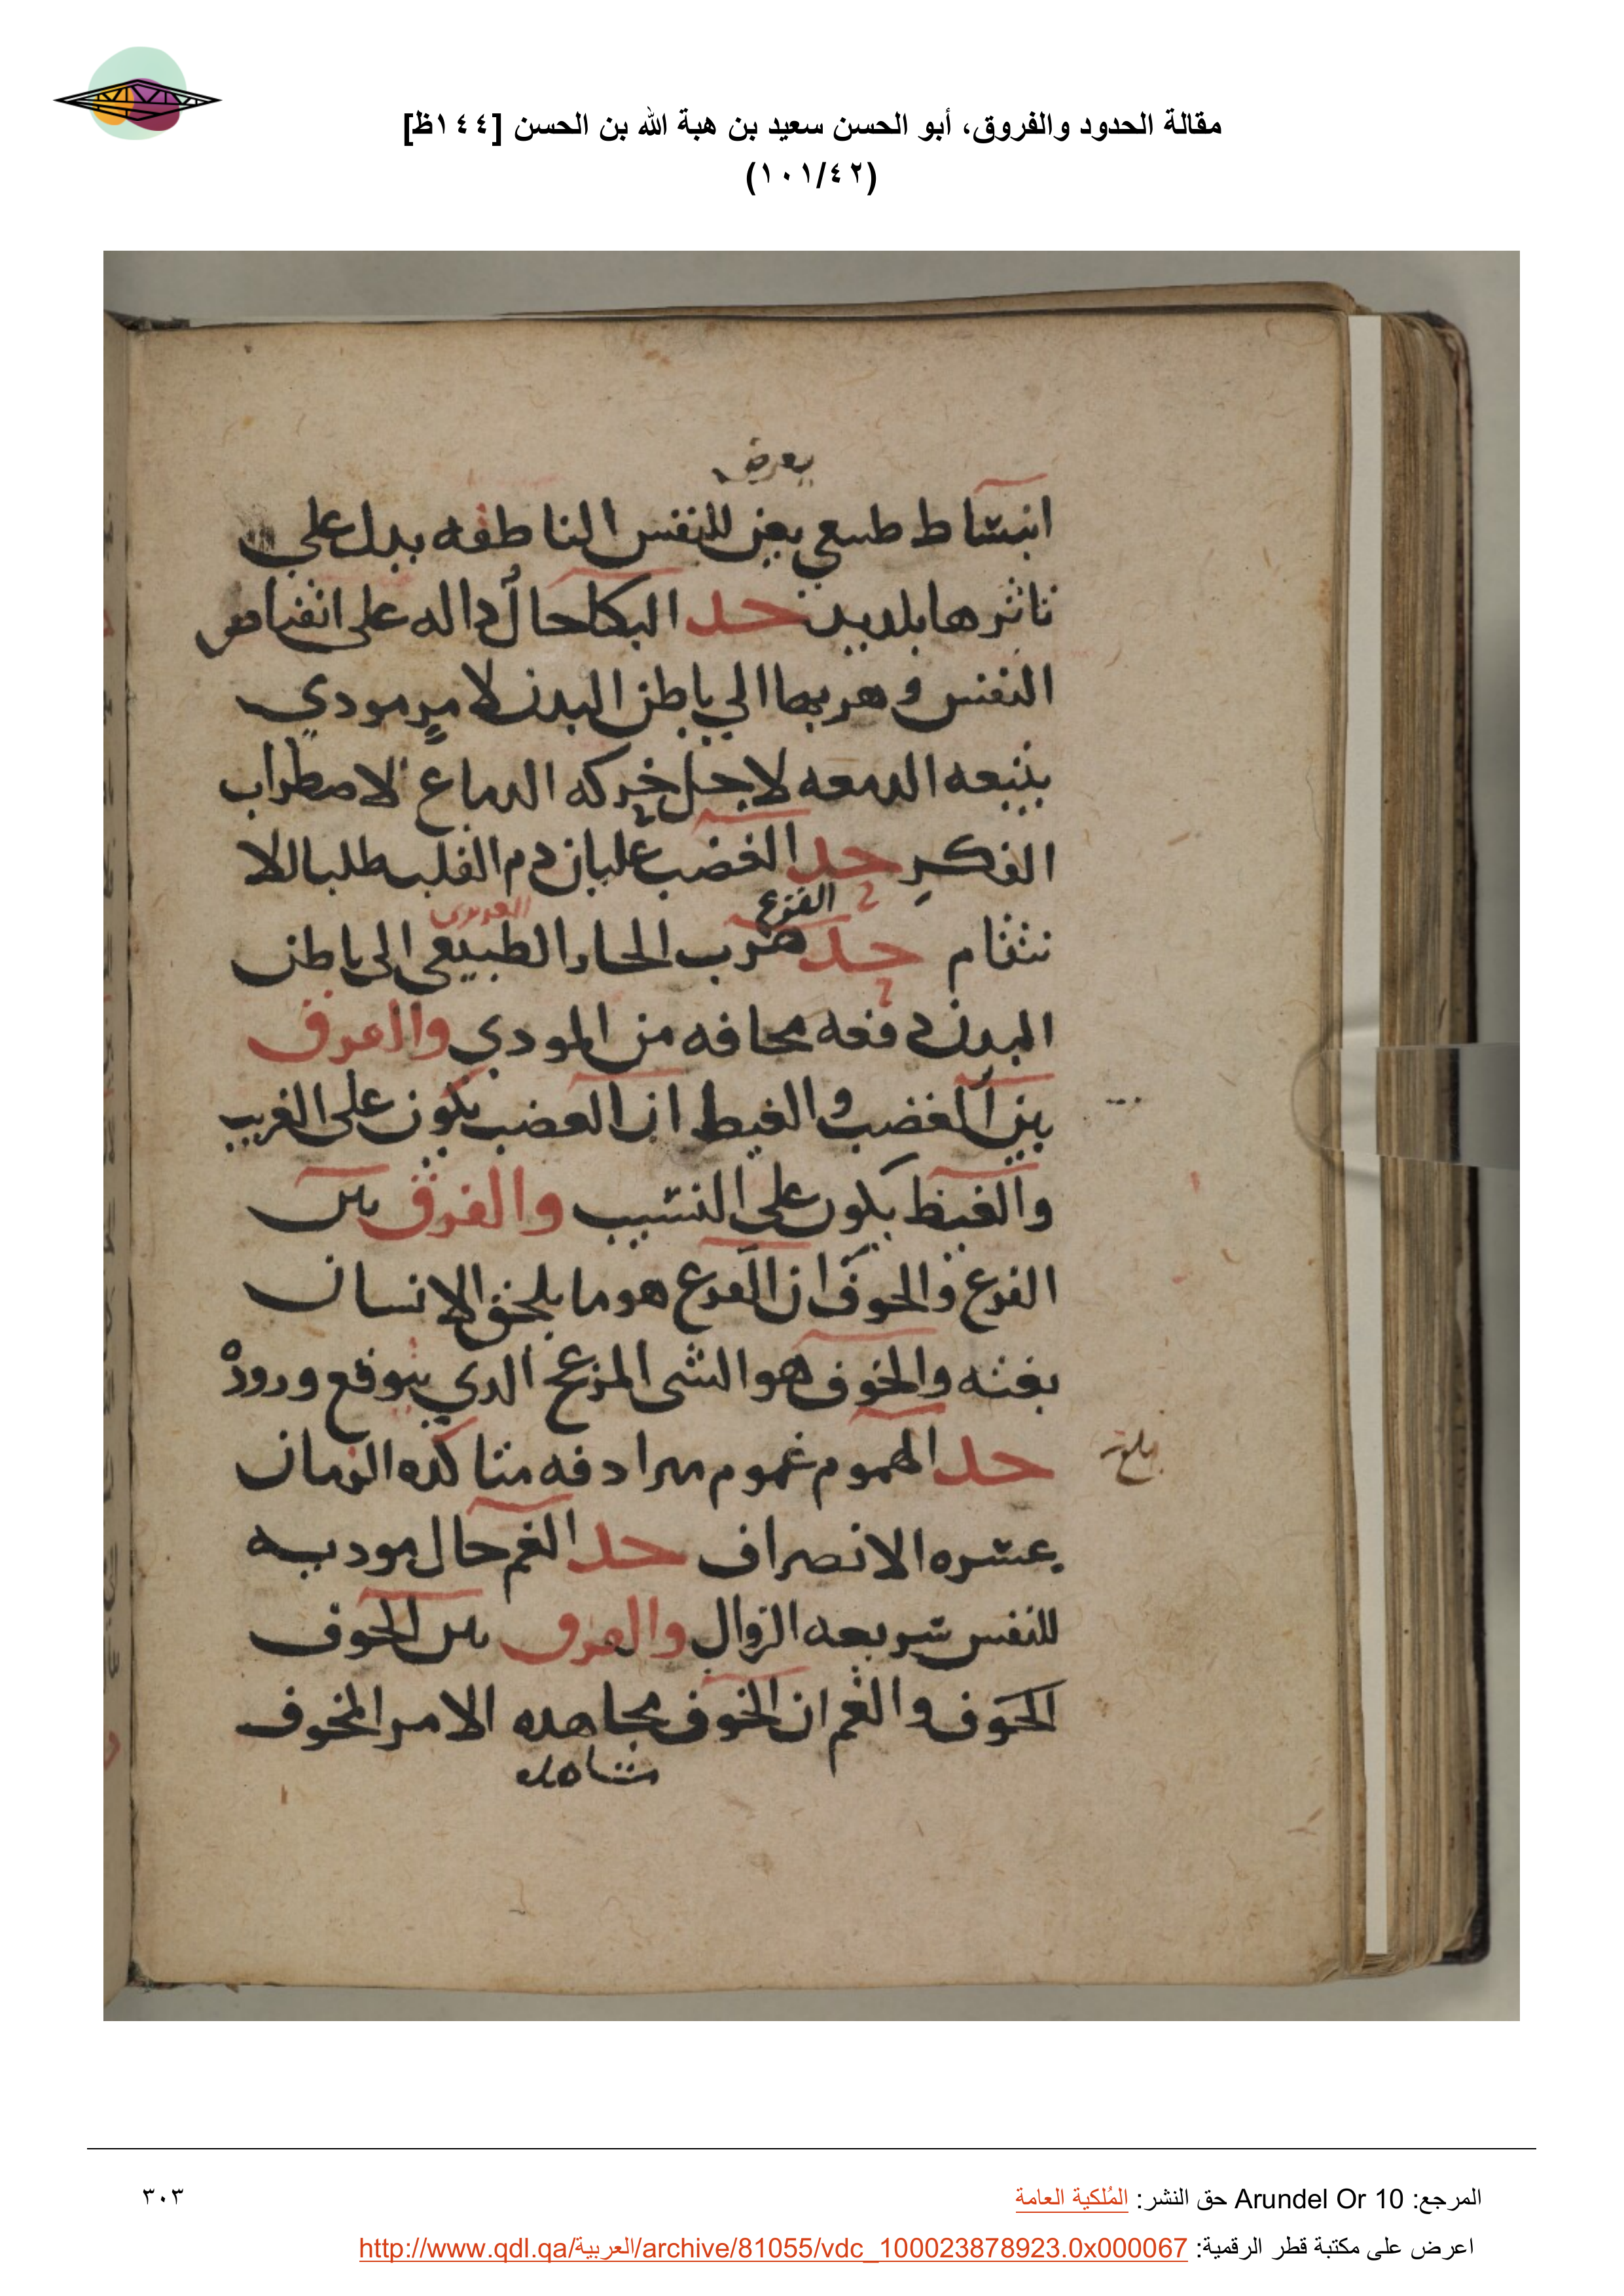 مقالة الحدود والفروق، أبو الحسن سعيد بن هبة الله بن الحسن [١٤٤ظ]
(١٠١/٤٢)
يعرض
انبساط طبيعي يعرض للنفس الناطقه يدل علي
تاثرها بلذيذ حد البكا حال داله على انقباض
النفس وهربها الي باطن البدن لامر مودي
يتبعه الدمعه لاجل حركه الدماغ لاضطراب
الفكر حد الغضب غليان دم القلب طلبا للا
الفزع
نتقام حد هرب الحار الطبيعي الى باطن
البدن دفعه مخافه من المودي والفرق
بين الغضب والغيظ ان الغضب يكون على الغريب
والغيظ يكون على النسيب والفرق بين
الفزع والخوف ان الفزع هو ما يلحق الانسان
بغته والخوف هو الشى المزعج الذي يتوقع وروده
حد الهموم غموم مترادفه متاكده الزمان
عسره الانصراف حد الغم حال موديه
للنفس سريعه الزوال والفرق بين الخوف
الخوف والغم ان الخوف مجاهده الامر المخوف
مشاهده
المرجع: Arundel Or 10 حق النشر: المُلكية العامة
٣٠٣
اعرض على مكتبة قطر الرقمية: http://www.qdl.qa/العربية/archive/81055/vdc_100023878923.0x000067